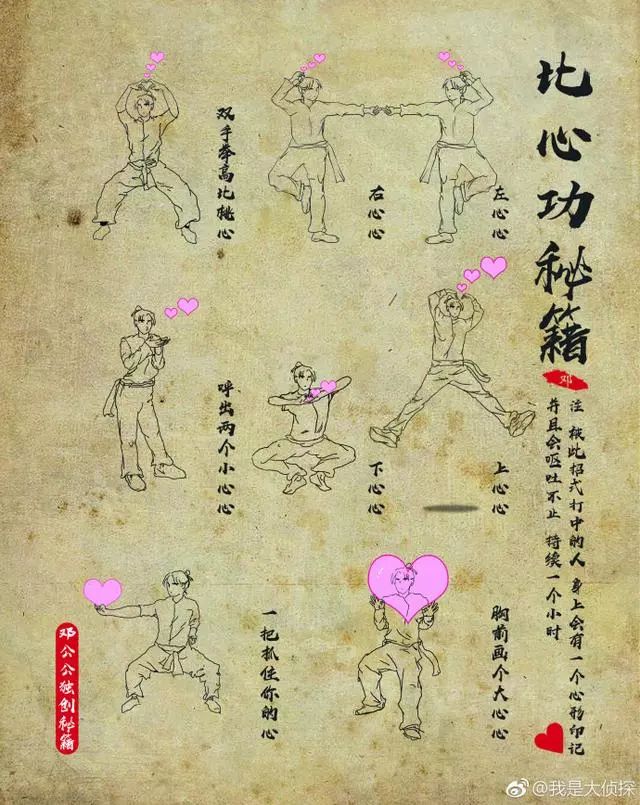 比心功秘籍
邓
注 被此招式打中的人 身上会有一个心形印记
并且会呕吐不止 持续一个小时
左心心
右心心
双手举高比桃心
上心心
下心心
呼出两个小心心
胸前画个大心心
一把抓住你的心
邓公公独创秘籍
@我是大侦探